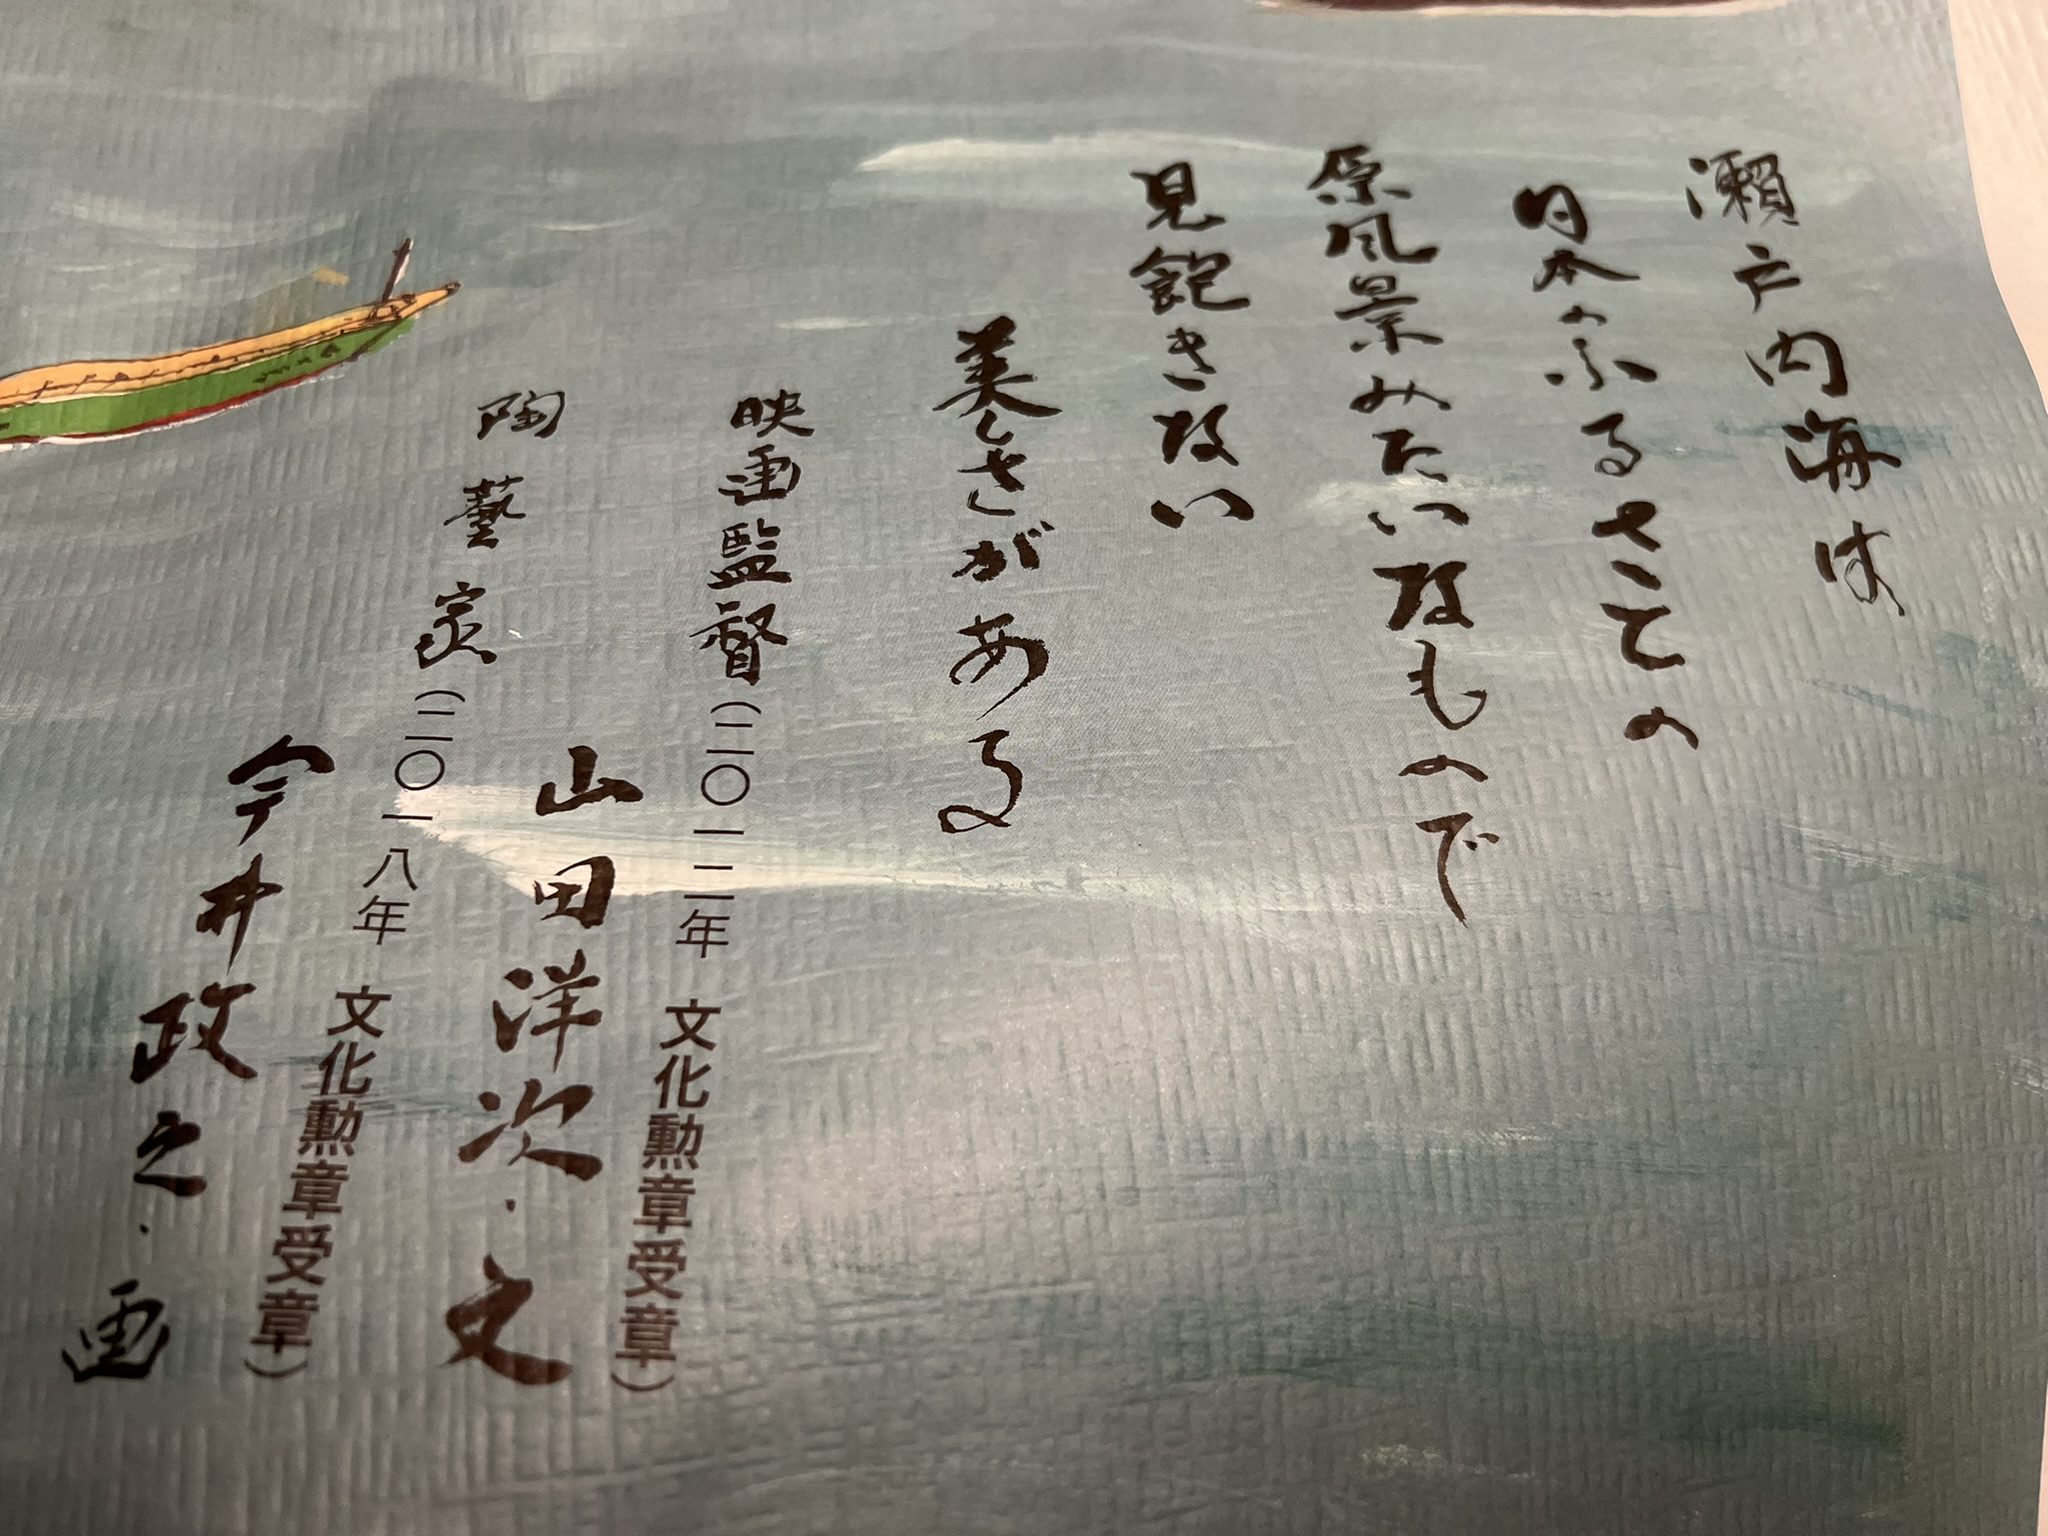 瀬戸内海は
日本のふるさとの
原風景みたいなもので
見飽きない
美しさがある
映画監督(二〇一二年 文化勲章受章)
山田洋次・文
陶藝家(二〇一八年 文化勲章受章)
今井政之・画